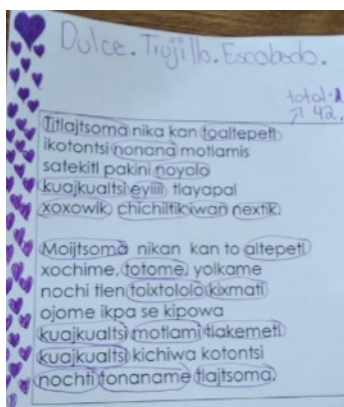 Dulce. Trujillo. Escobedo.
total-1
↗ 42.
Titlajtsoma nika kan toaltepetl
ikotontsi nonana motlamis
satekitl pakini noyolo
kuajkualtsi eyiiil tlayapal
xoxowik, chichiltik iwan nextik.
Moijtsoma nikan kan to altepetl
xochime, totome, yolkame
nochi tlen toixtololo kixmati
ojome ikpa se kipowa
kuajkualtsi motlami tlakemetl
kuajkualtsi kichiwa kotontsi
nochti tonaname tlajtsoma.